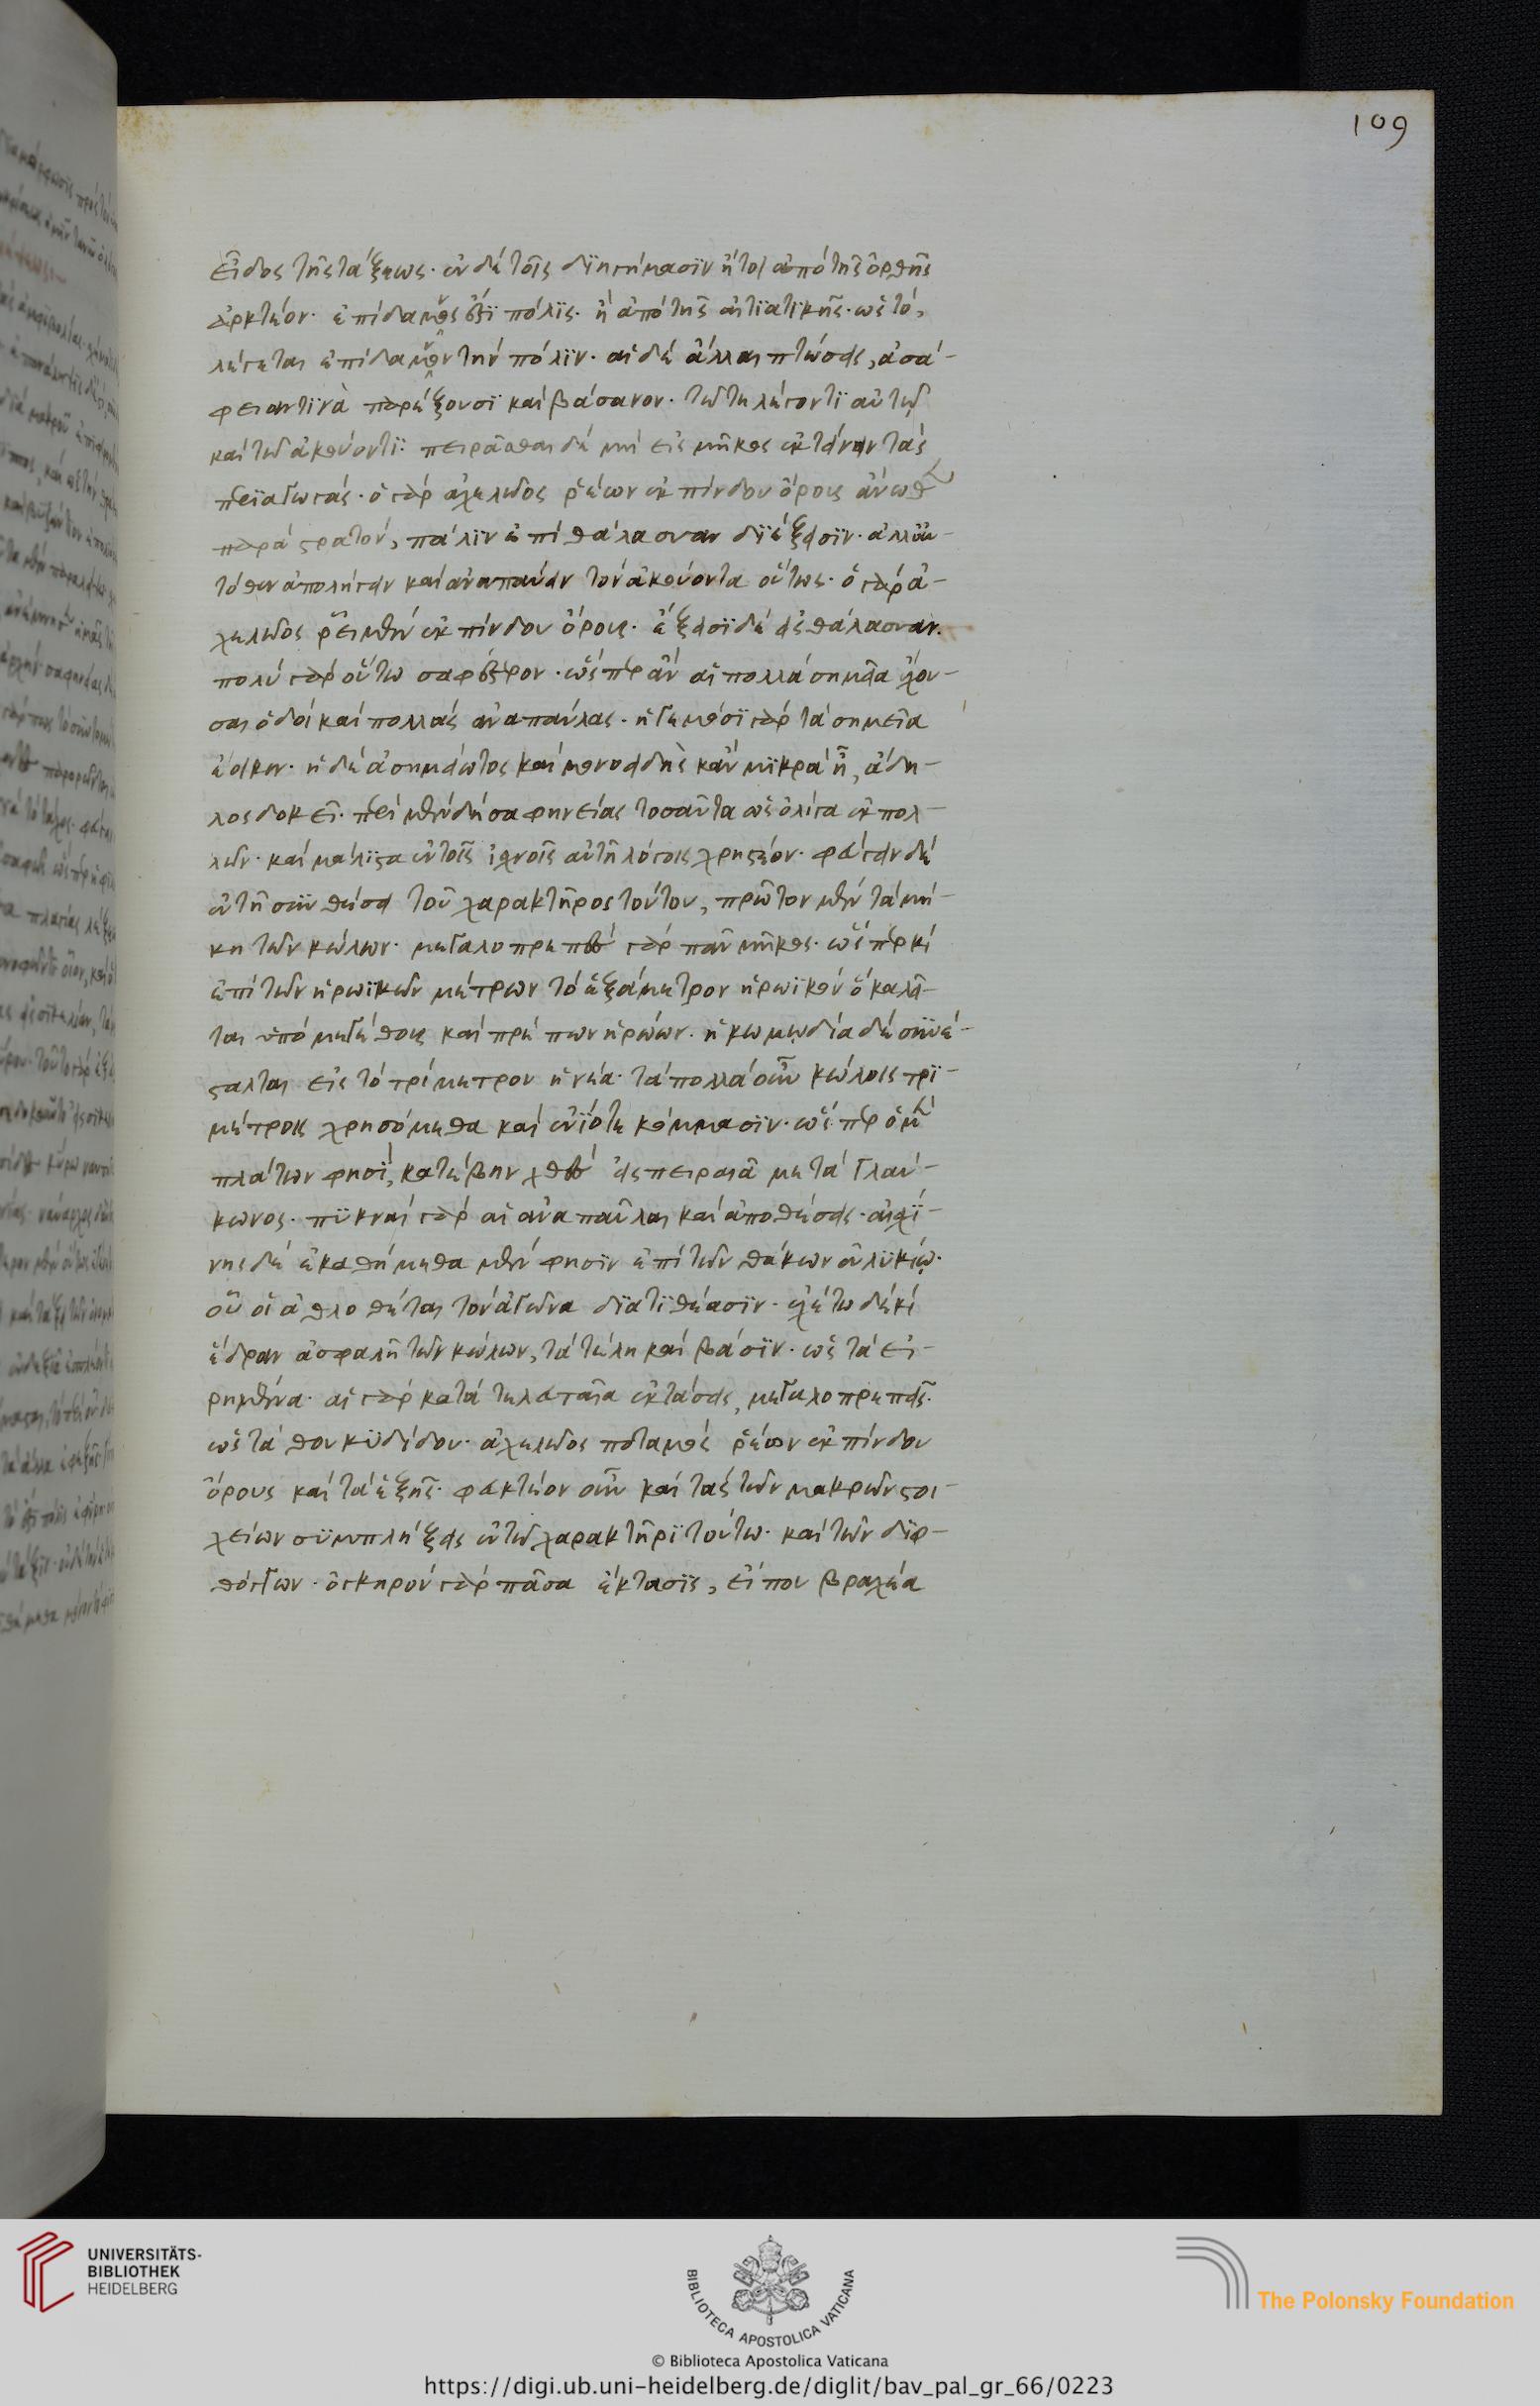 109
εἶδος τῆς τάξεως· ἐν δὲ τοῖς διηγήμασιν ἤτοι ἀπὸ τῆς ὀρθῆς
ἀρκτέον· ἐπίδαμνός ἐστι πόλις· ἢ ἀπὸ τῆς αἰτιατικῆς· ὡς τό,
λέγεται ἐπίδαμνον τὴν πόλιν· αἱ δὲ ἄλλαι πτώσεις, ἀσά-
φειαν τινὰ παρέξουσι καὶ βάσανον· τῶ τε λέγοντι αὐτῶ
καὶ τῶ ἀκούοντι· πειρᾶσθαι δὲ μὴ εἰς μῆκος ἐκτείνειν τὰς
περιαγωγάς· ὁ γὰρ ἀχελῶος ῥέων ἐκ πίνδου ὄρους ἄνωθεν
παρὰ στρατόν, πάλιν ἐπὶ θάλασσαν διέξεισιν· ἀλλ' αὐ-
τόθεν ἀπολήγειν καὶ ἀναπαύειν τὸν ἀκούοντα οὕτως· ὁ γὰρ ἀ-
χελῶος ῥεῖ μὲν ἐκ πίνδου ὄρους· ἔξεισι δὲ εἰς θάλασσαν.
πολὺ γὰρ οὕτω σαφέστερον· ὥσπερ ἂν αἱ πολλὰ σημεῖα ἔχου-
σαι ὁδοὶ καὶ πολλὰς ἀναπαύλας· ἡγεμόσι γὰρ τὰ σημεῖα
ἔοικεν· ἡ δὲ ἀσημείωτος καὶ μονοειδὴς κἂν μικρὰ ᾖ, ἄδη-
λος δοκεῖ· περὶ μὲν δὴ σαφηνείας τοσαῦτα ὡς ὀλίγα ἐκ πολ-
λῶν· καὶ μάλιστα ἐν τοῖς ἰσχνοῖς αὐτῆ λόγοις χρηστέον· φεύγειν δὲ
ἐν τῆ συνθέσει τοῦ χαρακτῆρος τούτου, πρῶτον μὲν τὰ μή-
κη τῶν κώλων· μεγαλοπρεπὲς γὰρ πᾶν μῆκος· ὥσπερ καὶ
ἐπὶ τῶν ἡρωϊκῶν μέτρων τὸ ἑξάμετρον ἡρωϊκὸν ὃ καλεῖ-
ται ὑπὸ μεγέθους καὶ πρέπων ἡρώων· ἡ κωμωδία δὲ συνέ-
σταλται εἰς τὸ τρίμετρον ἡ νέα· τὰ πολλὰ οὖν κώλοις τρι-
μέτροις χρησόμεθα καὶ ἐνίοτε κόμμασιν· ὥσπερ ὁ μὲν
πλάτων φησί, κατέβην χθὲς εἰς πειραιᾶ μετὰ γλαύ-
κωνος· πυκναὶ γὰρ αἱ ἀνάπαυλαι καὶ ἀποθέσεις· αἰσχί-
νης δὲ ἐκαθήμεθα μὲν φησὶν ἐπὶ τῶν θάκων ἐν λυκείω·
οὗ οἱ ἀθλοθέται τὸν ἀγῶνα διατιθέασιν· ἐχέτω δὲ καὶ
ἕδραν ἀσφαλῆ τῶν κώλων, τὰ τέλη καὶ βάσιν· ὡς τὰ εἰ-
ρημένα· αἱ γὰρ κατὰ τελευταῖα ἐκτάσεις, μεγαλοπρεπεῖς·
ὡς τὰ θουκυδίδου· ἀχελῶος ποταμὸς ῥέων ἐκ πίνδου
ὄρους καὶ τὰ ἑξῆς· φευκτέον οὖν καὶ τὰς τῶν μακρῶν στοι-
χείων συμπλήξεις ἐν τῶ χαρακτῆρι τούτω· καὶ τῶν διφ-
θόγγων· ὀγκηρὸν γὰρ πᾶσα ἔκτασις, εἴ που βραχέα
UNIVERSITÄTS-
BIBLIOTHEK
HEIDELBERG
BIBLIOTECA APOSTOLICA VATICANA
The Polonsky Foundation
© Biblioteca Apostolica Vaticana
https://digi.ub.uni-heidelberg.de/diglit/bav_pal_gr_66/0223